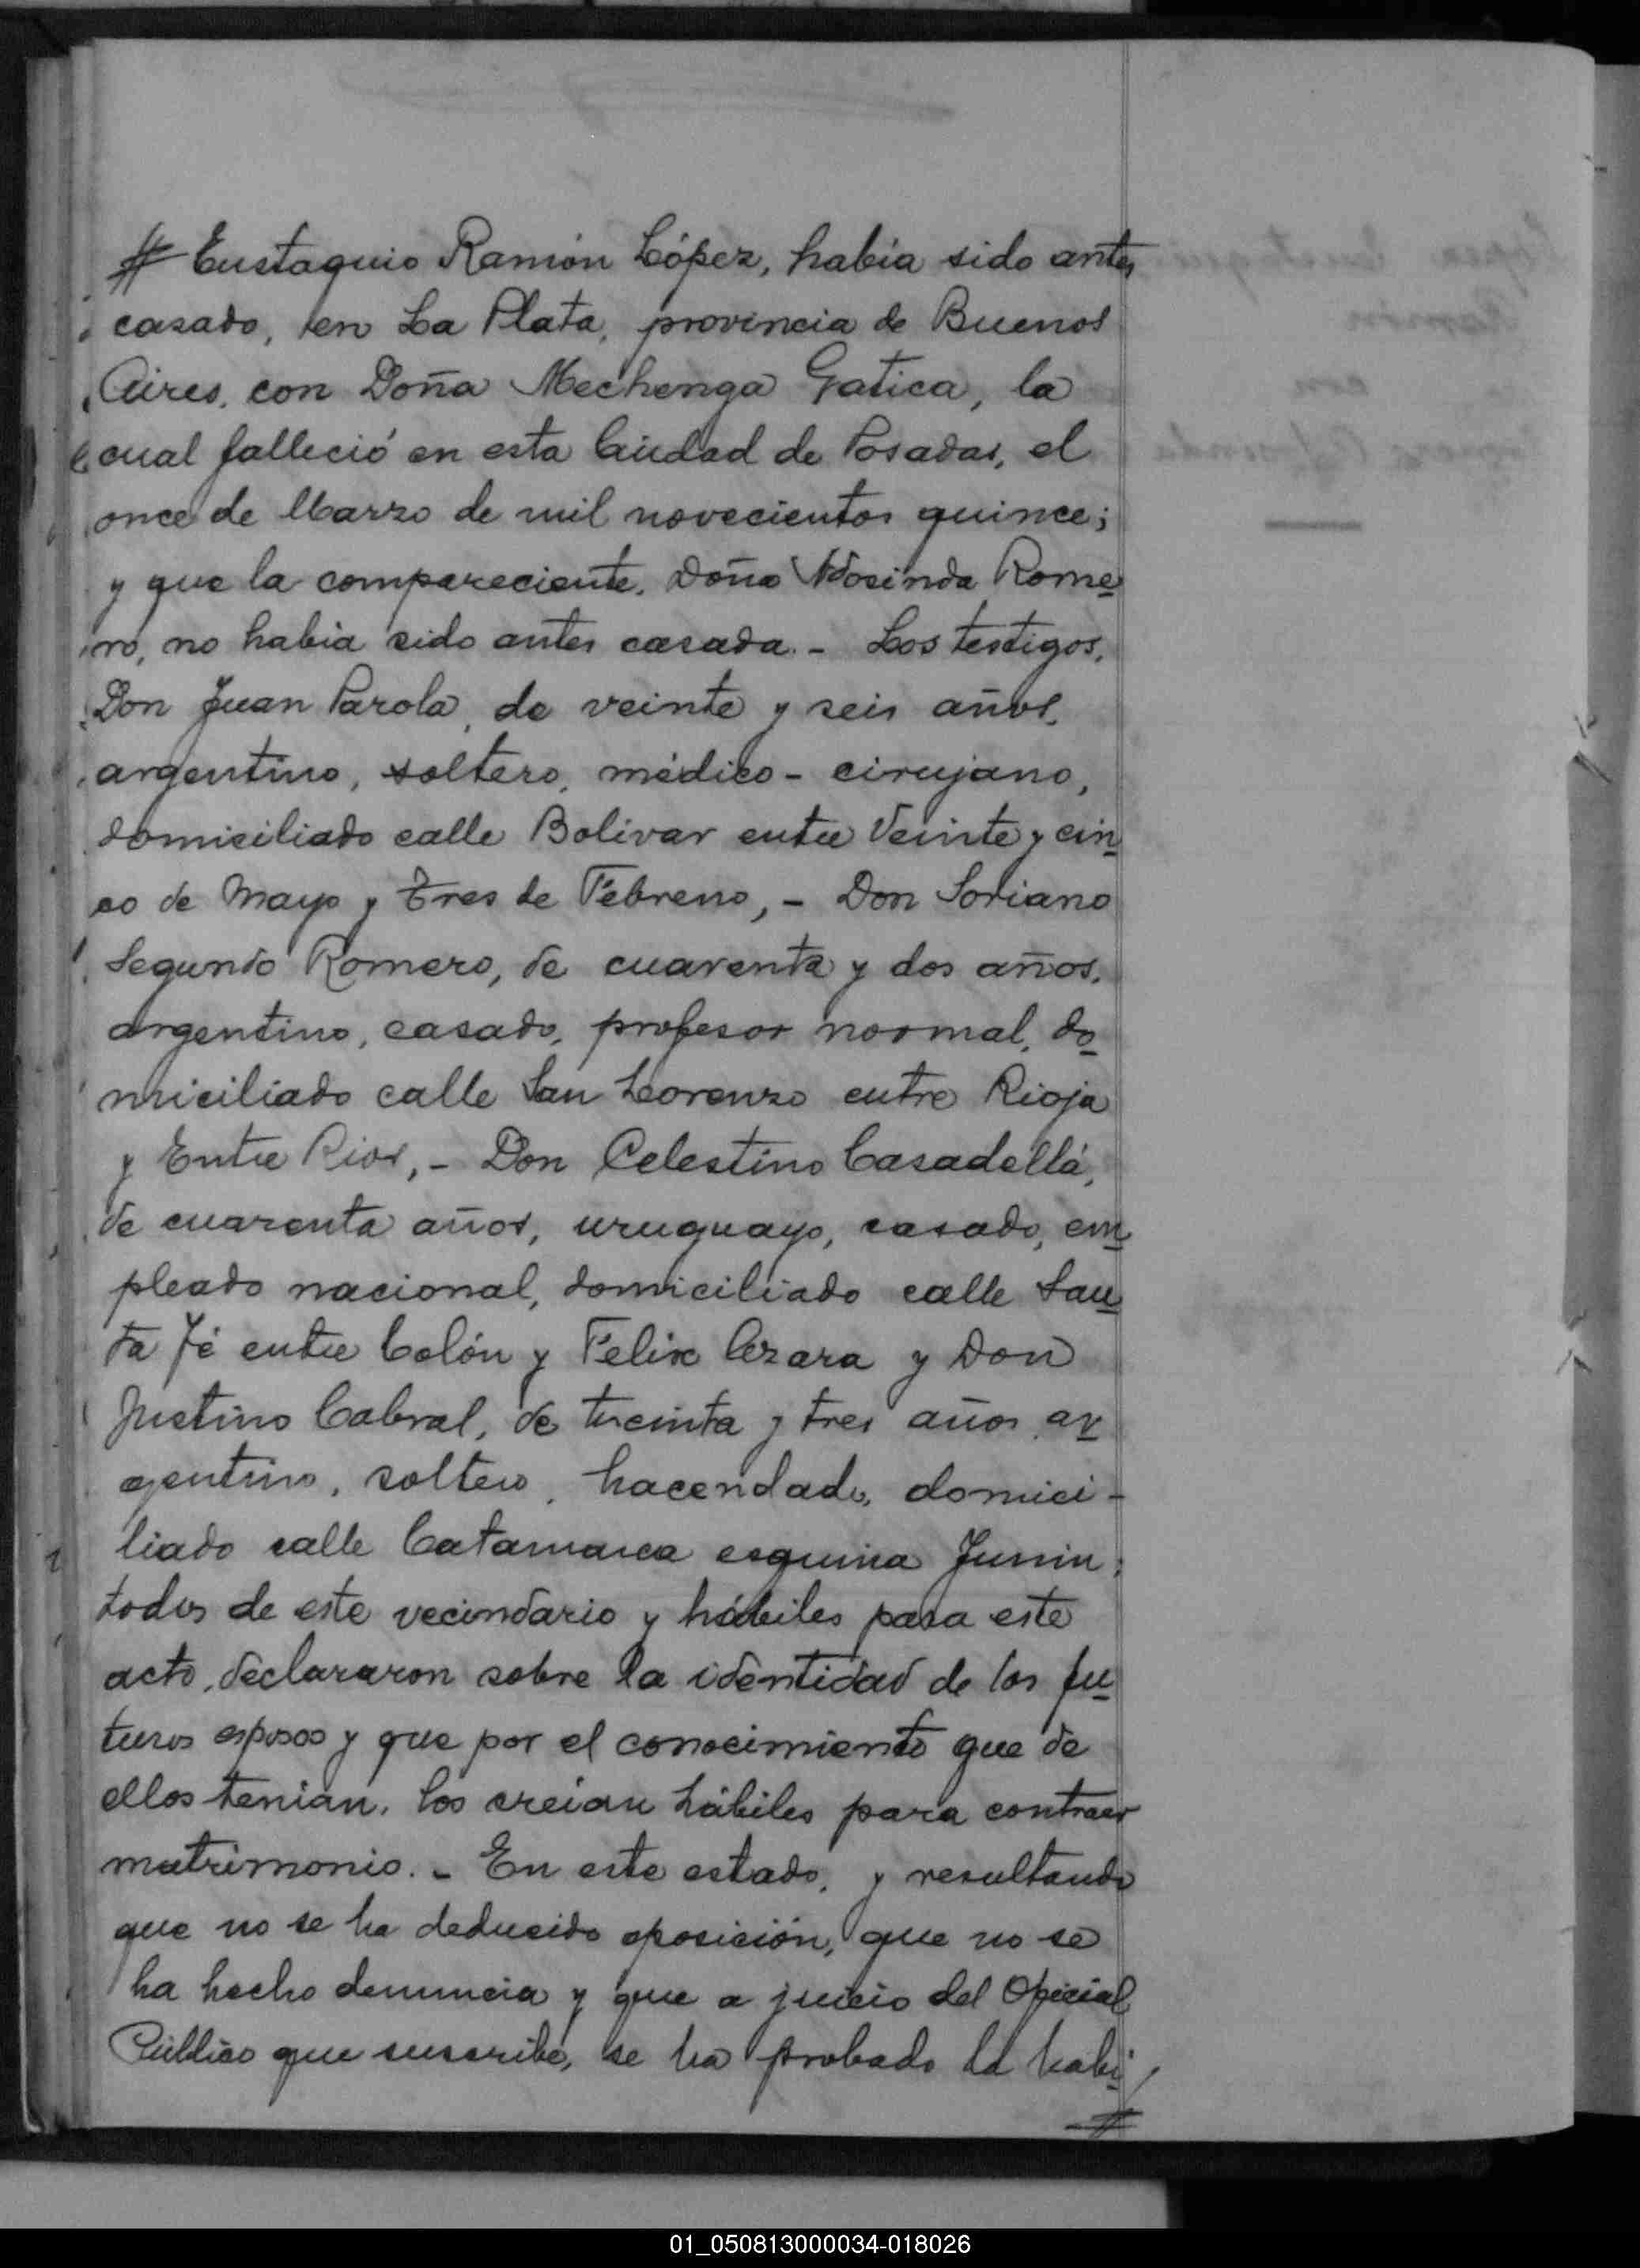 # Eustaquio Ramón López, había sido antes
casado, en La Plata, provincia de Buenos
Aires, con Doña Mechenga Gatica, la
cual falleció en esta Ciudad de Posadas, el
once de Marzo de mil novecientos quince;
y que la compareciente, Doña Adosinda Rome
ro, no había sido antes casada. - Los testigos,
Don Juan Parola, de veinte y seis años,
argentino, soltero, médico - cirujano,
domiciliado calle Bolivar entre Veinte y cin
co de Mayo y Tres de Febrero, - Don Soriano
Segundo Romero, de cuarenta y dos años,
argentino, casado, profesor normal, do
miciliado calle San Lorenzo entre Rioja
y Entre Rios, - Don Celestino Casadellá,
de cuarenta años, uruguayo, casado, em
pleado nacional, domiciliado calle San
ta Fé entre Colón y Félix Azara y Don
Justino Cabral, de treinta y tres años, ar
gentino, soltero, hacendado, domici -
liado calle Catamarca esquina Junin;
todos de este vecindario y hábiles para este
acto, declararon sobre la identidad de los fu
turos esposos y que por el conocimiento que de
ellos tenían, los creían hábiles para contraer
matrimonio. - En este estado, y resultando
que no se ha deducido oposición, que no se
ha hecho denuncia y que a juicio del Oficial
Público que suscribe, se ha probado la habi
#
01_050813000034-018026